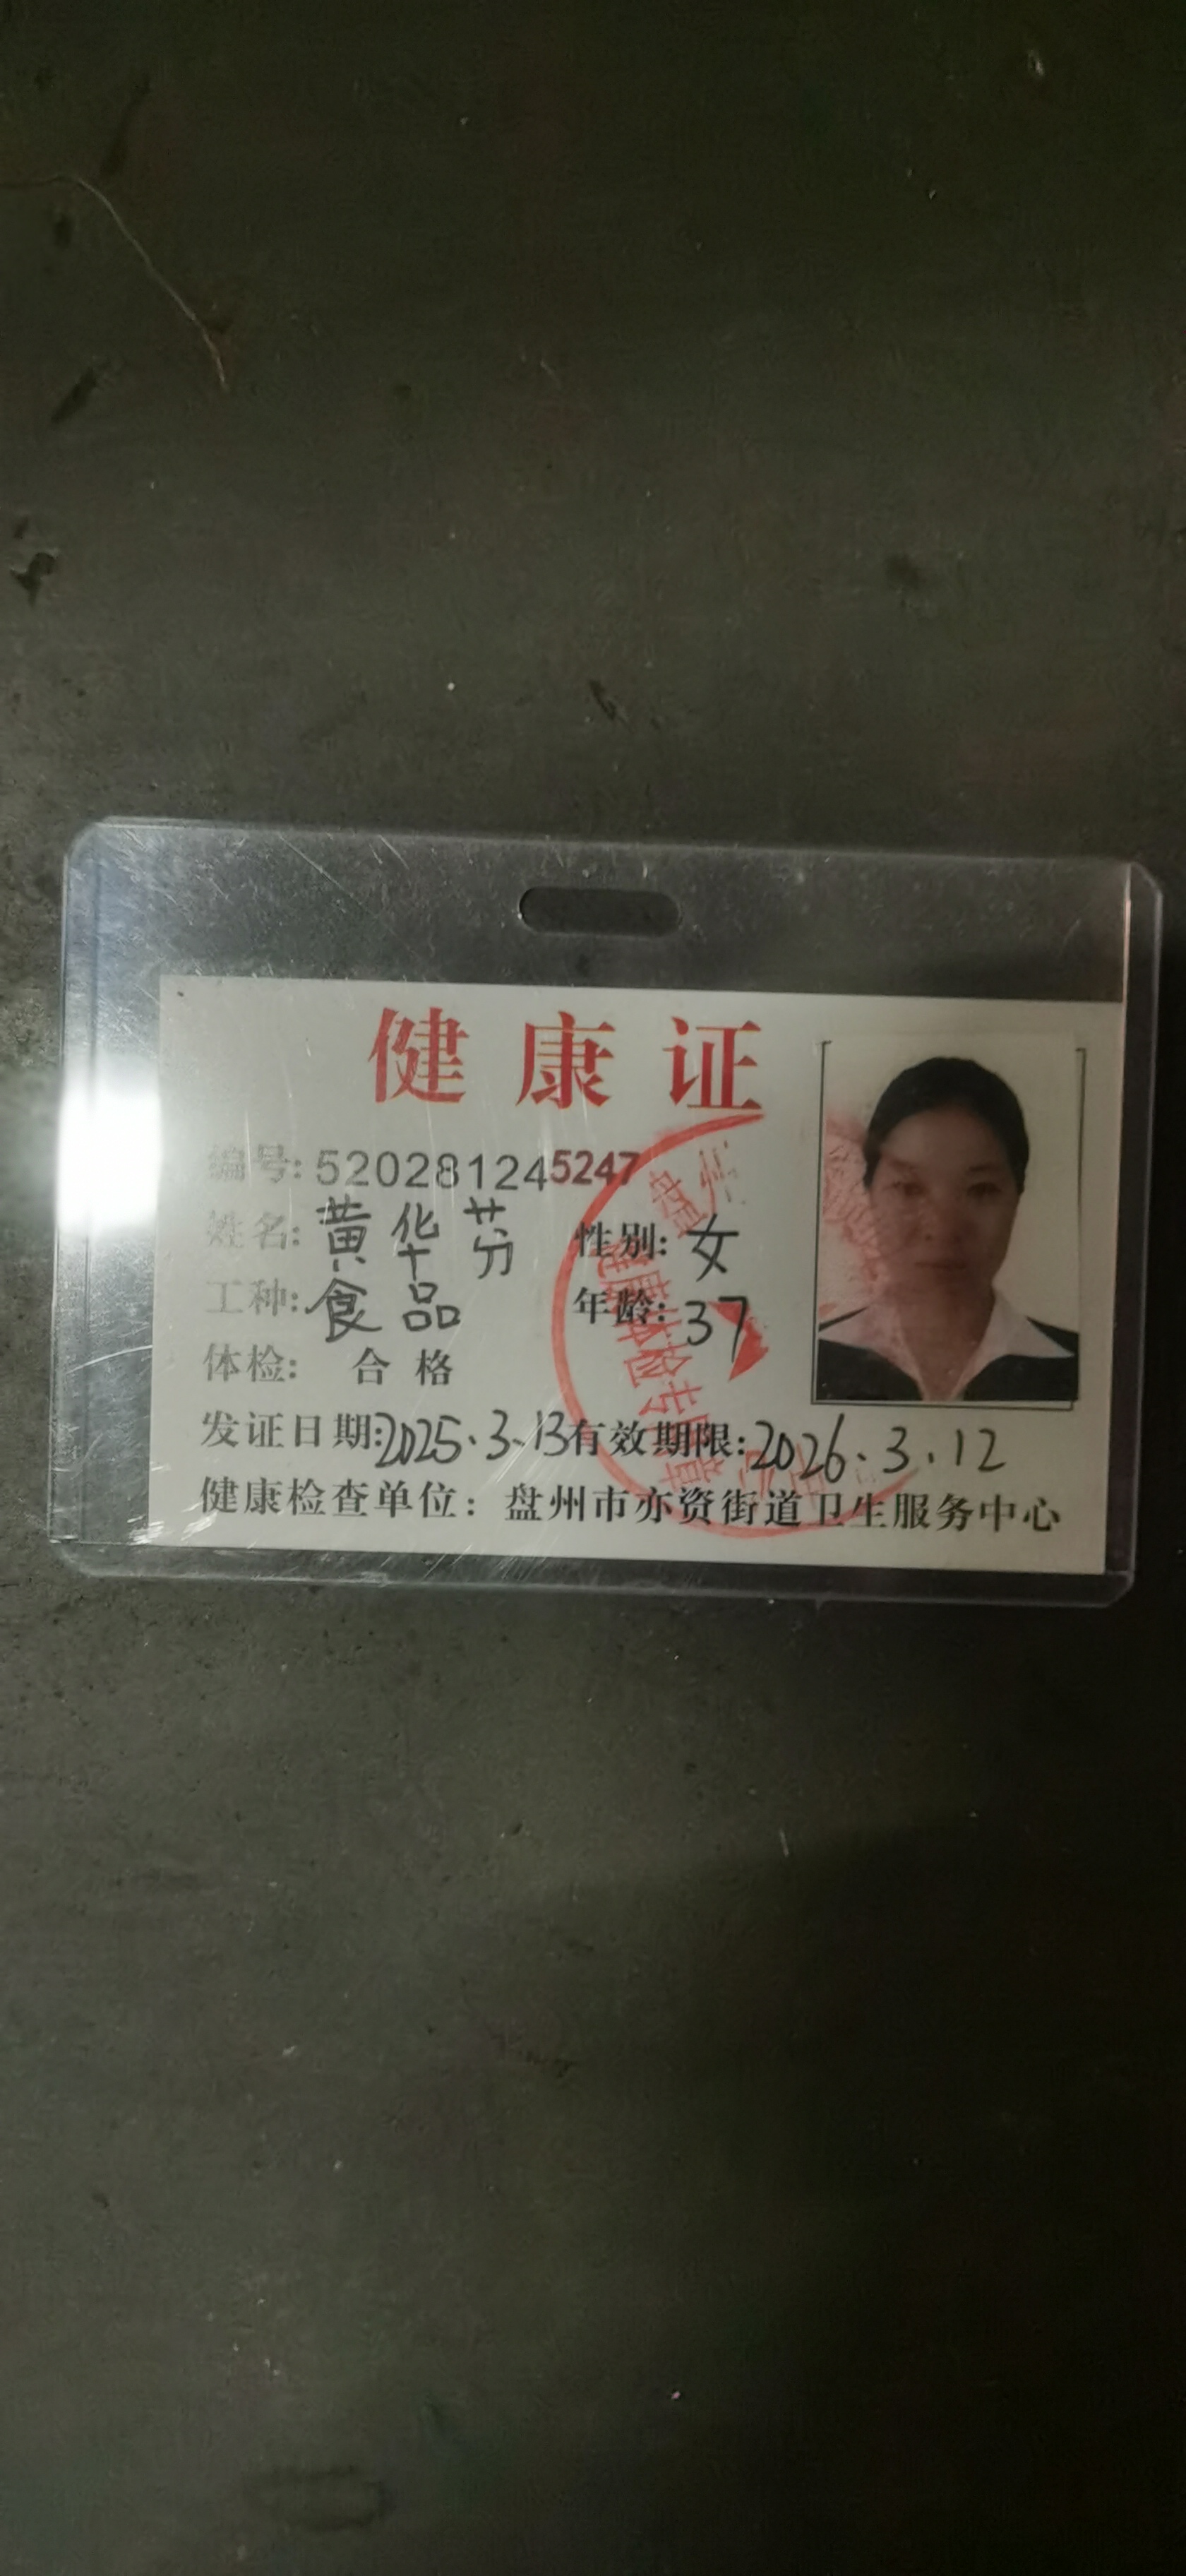 健康证
编号: 5202812455247
姓名: 黄华芬 性别: 女
工种: 食品 年龄: 37
体检: 合格
发证日期: 2025.3.13 有效期限: 2026.3.12
健康检查单位: 盘州市亦资街道卫生服务中心
健康体检专用章